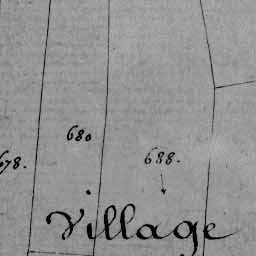 680
688.
678.
Village